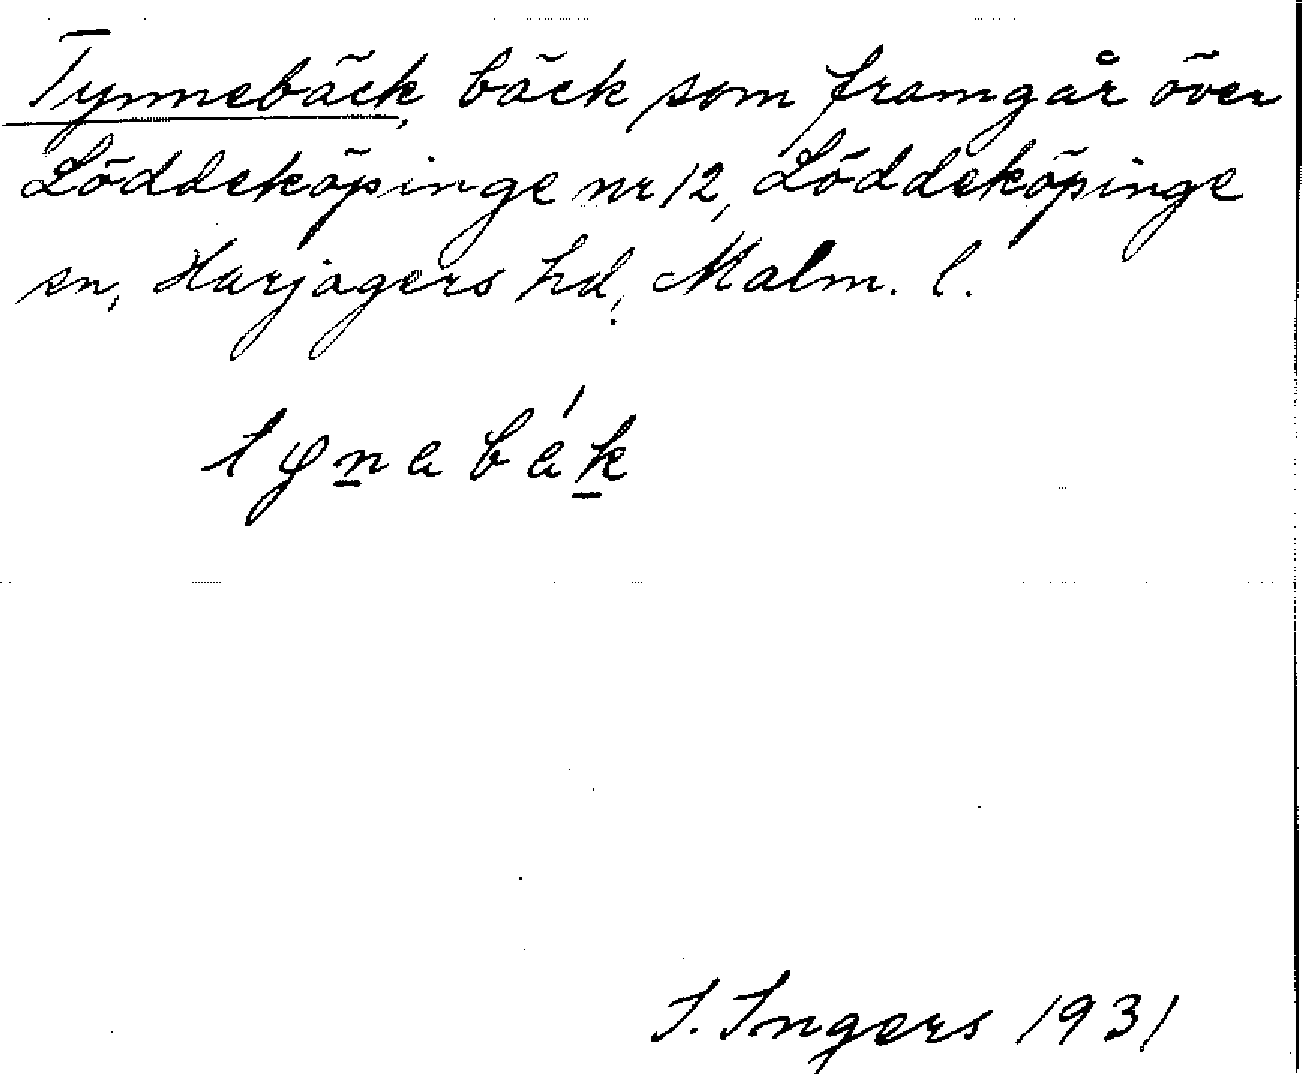 Tynnebäck, bäck som framgår över
Löddeköpinge nr 12, Löddeköpinge
sn, Harjagers hd, Malm. l.
I. Ingers 1931